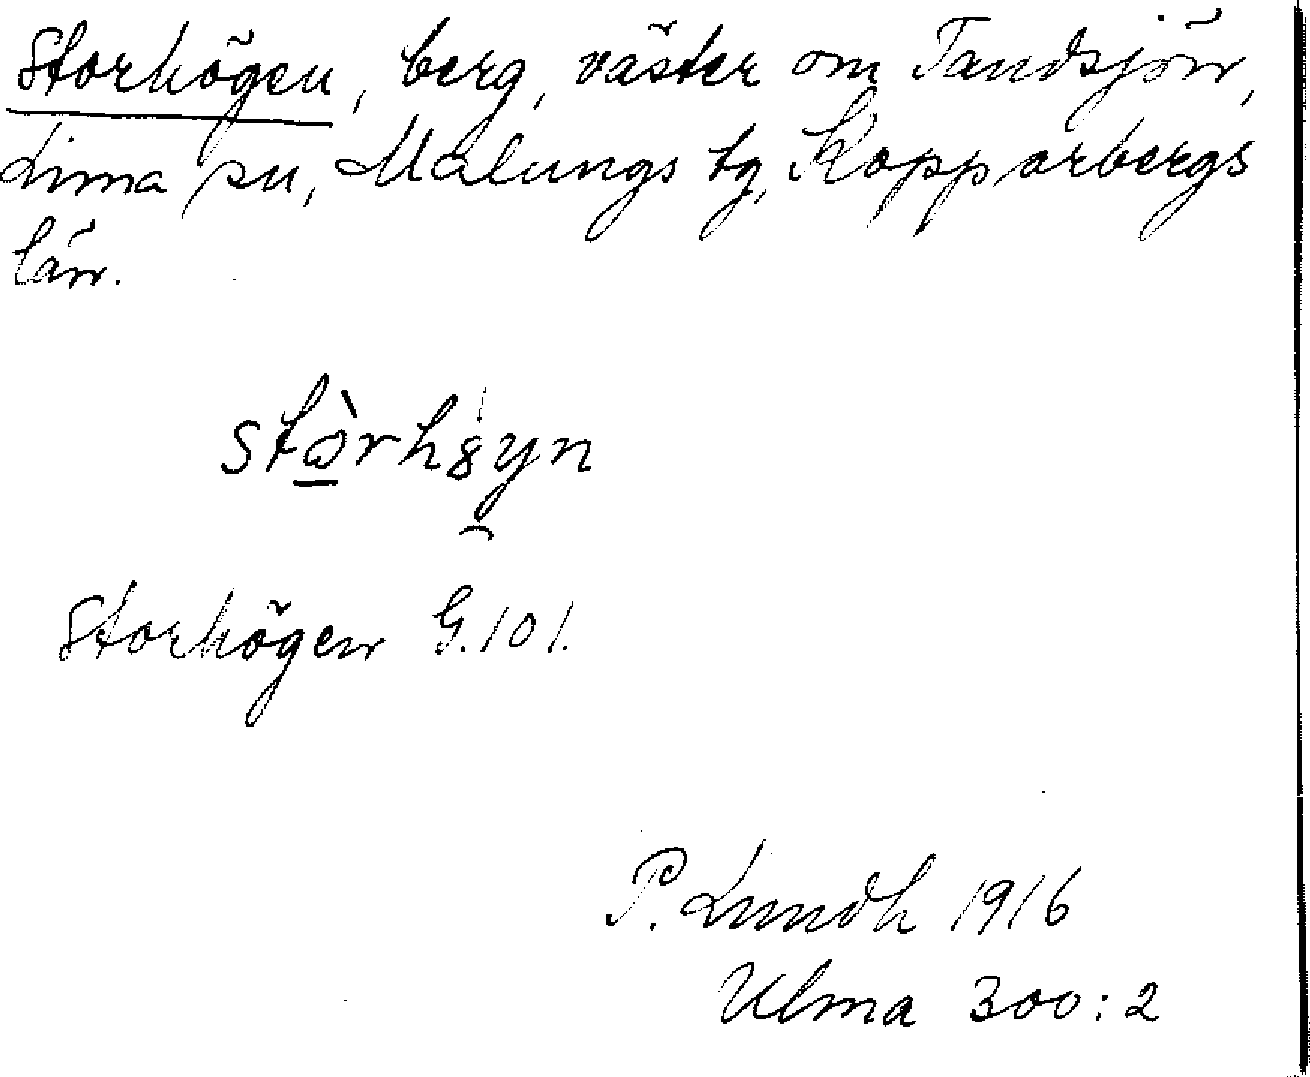 Storhögen, berg, väster om Tandsjön,
Lima sn, Malungs tg, Kopparbergs
län.
Storhögen G.101.
P. Lundh 1916
Ulma 300:2